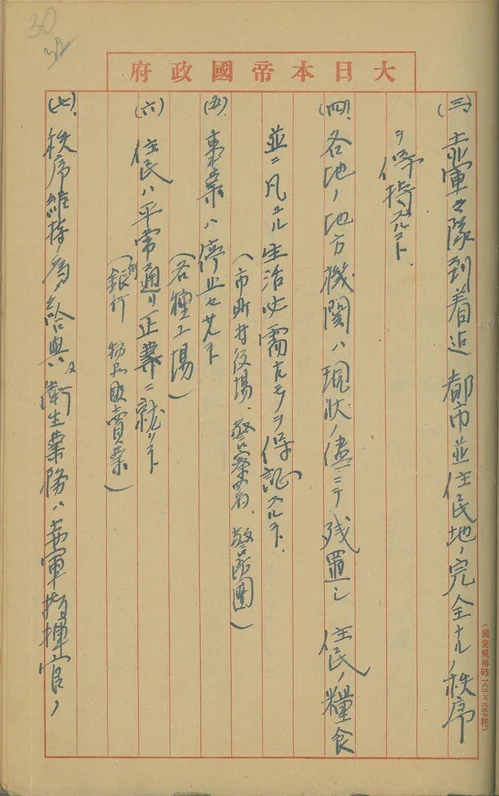 30
大日本帝國政府
(三)、赤軍々隊到着迄都市並住民地ノ完全ナル秩序
ヲ保持スルコト.
(四)、各地ノ地方機関ハ現状ノ儘ニテ残置シ 住民ノ糧食
並ニ凡ユル生活必需品ヲ保証スルコト.
(市町村役場、警察署、警防團)
(五)、事業ハ停止セサルコト
(各種工場)
(六)、住民ハ平常通リ正業ニ就クコト
(銀行 物品販賣業)
(七)、秩序維持ノ為給與及衛生業務ハ赤軍指揮官ノ